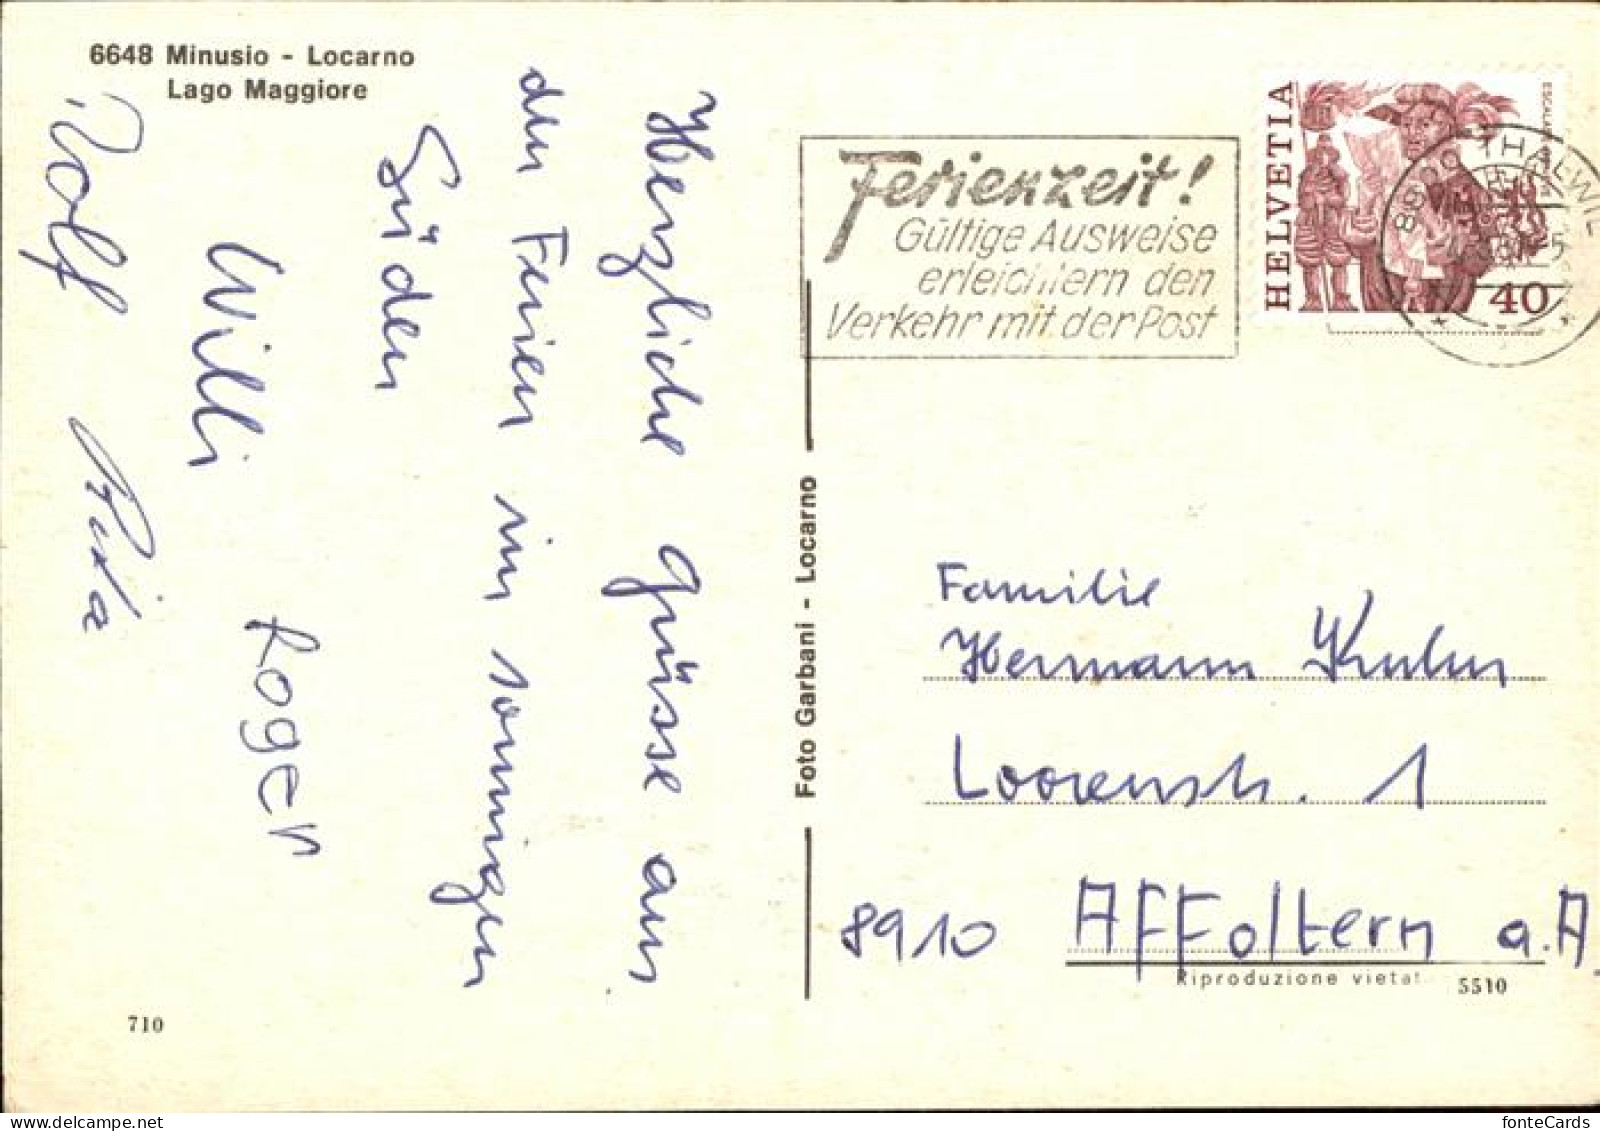 6648 Minusio - Locarno
Lago Maggiore
Herzliche Grüsse aus
den Ferien im sonnigen
Süden
Willi Roger
Rolf
710
Foto Garbani - Locarno
Ferienzeit!
Gültige Ausweise
erleichtern den
Verkehr mit der Post
HELVETIA
40
8800 THALWIL
Familie
Hermann
Loorenstr. 1
8910 Affoltern a.A.
Riproduzione vietat
5510
fonteCards www.delcampe.net